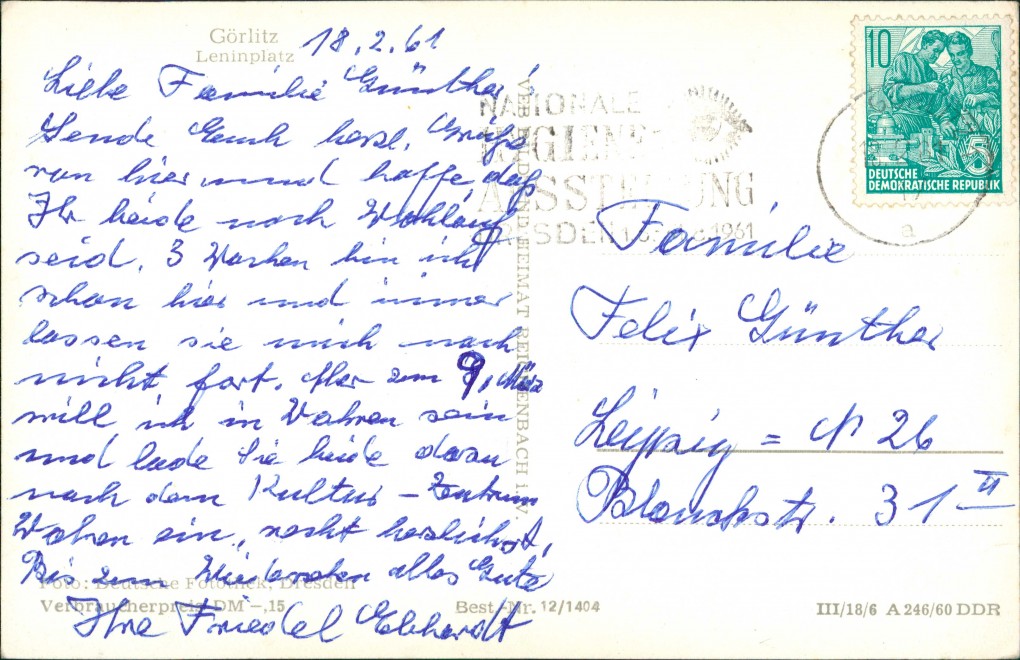 Görlitz
Leninplatz
18.2.61
Liebe Familie Günther!
Sende Euch herzl. Grüße
von hier und hoffe, daß
Ihr beide noch Wohlauf
seid. 3 Wochen bin ich
schon hier und immer
lassen sie mich noch
nicht fort. Aber zum 9. März
will ich in Wahren sein
und lade Sie beide dazu
nach dem Kultur-Zentrum
Wahren ein, recht herzlichst,
Bis zum Wiedersehen alles Gute
Ihre Friedel Ebhardt
Foto: Deutsche Fotothek, Dresden
Verbraucherpreis DM -,15
Best.-Nr. 12/1404
III/18/6 A 246/60 DDR
VEB BILD UND HEIMAT REICHENBACH i. V.
NATIONALE
HYGIENE
AUSSTELLUNG
DRESDEN 1961
10
DEUTSCHE
DEMOKRATISCHE REPUBLIK
5
a
Familie
Felix Günther
Leipzig = N 26
Blanckstr. 31 II